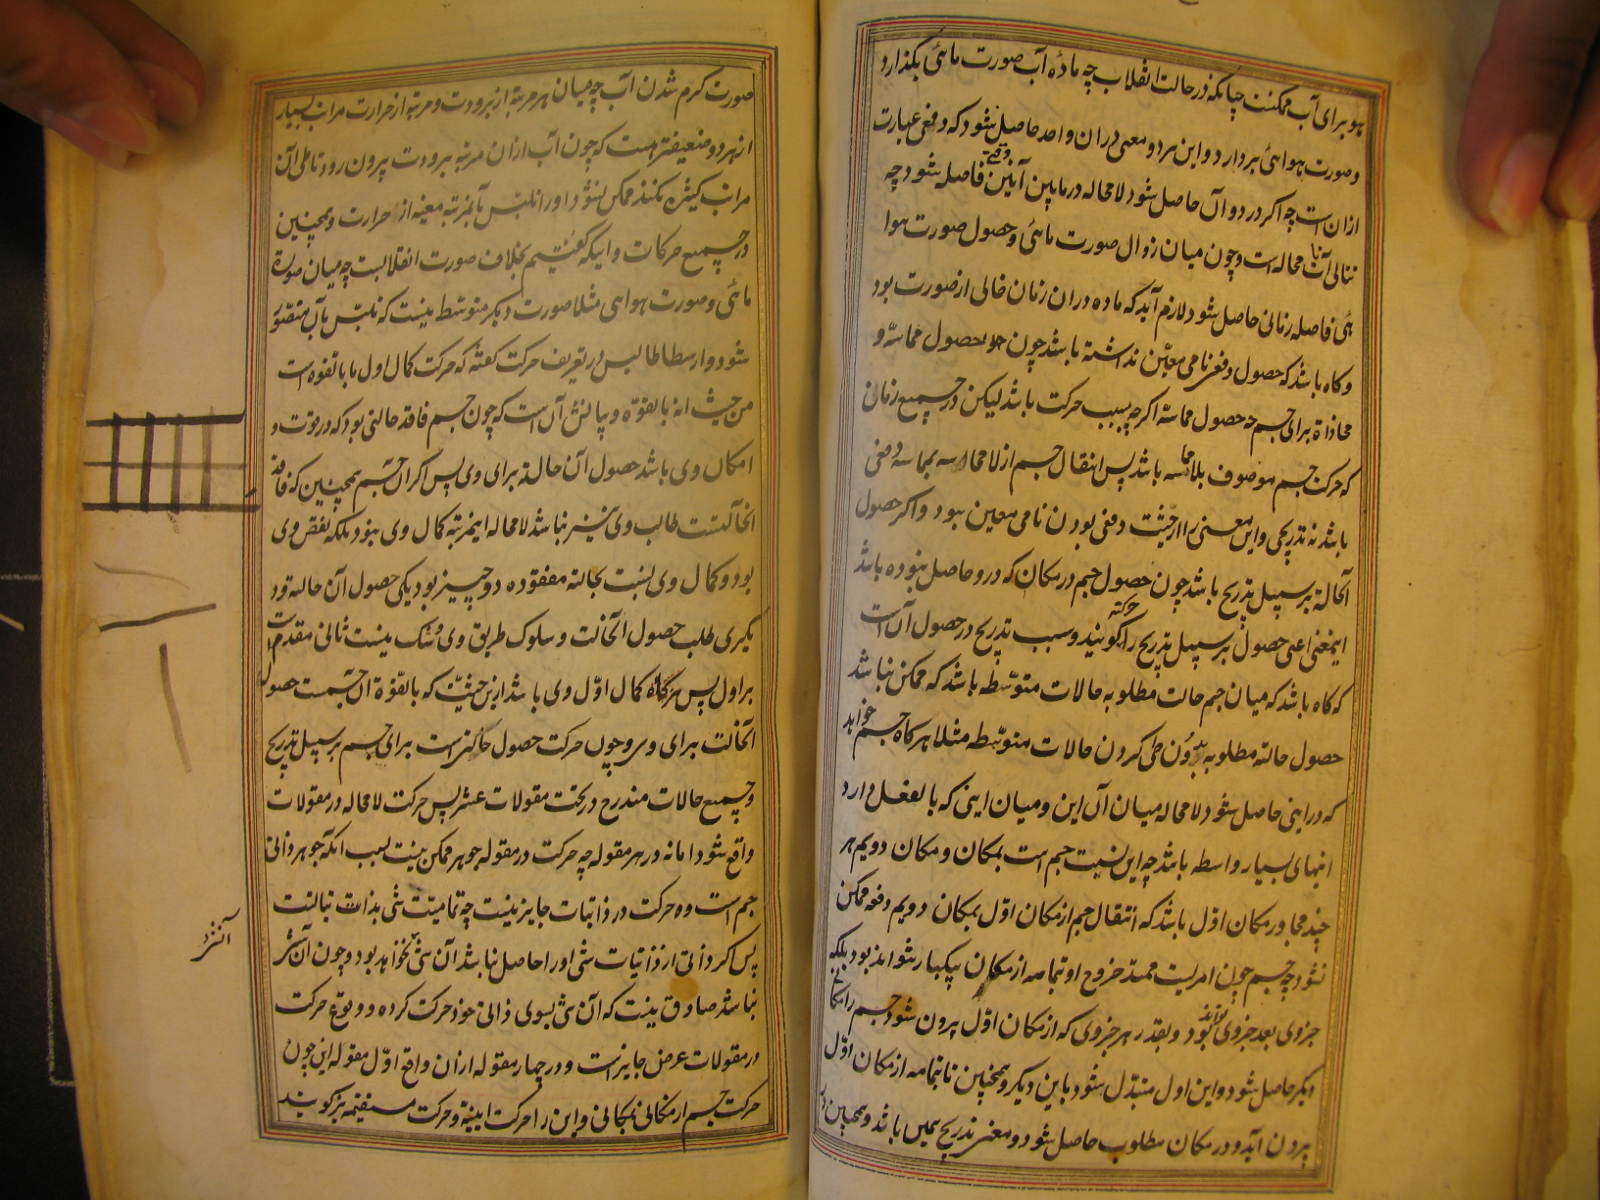 هو برای آب ممکنست چنانکه در حالت انقلاب چه ماده آب صورت مائی بگذارد
و صورت هوائی بردارد و این هر دو معنی در آن واحد حاصل شود که دفعی عبارت
از آن است چه اگر در دو آن حاصل شود لا محاله در مابین آنین زمانی فاصله شود چه
تتالی آنات محاله است و چون میان زوال صورت مائی و حصول صورت هوا
ئی فاصله زمانی حاصل شود لازم آید که ماده در آن زمان خالی از صورت بود
و گاه باشد که حصول دفعی نامی معین نداشته باشد چون حصول مماسه و
محاذاة برای جسم چه حصول مماسه اگر چه بسبب حرکت باشد لیکن در جمیع زمانی
که حرکت جسم موصوف بلا مماسه باشد پس انتقال جسم از لا مماسه بمماسه دفعی
باشد نه تدریجی و این معنی را از حیثیت دفعی بودن نامی معین نبود و اگر حصول
آنحالة بر سبیل تدریج باشد چون حصول جسم در مکان که درو حاصل نبوده باشد
اینمعنی اعنی حصول بر سبیل تدریج را حرکة گویند و سبب تدریج در حصول آن است
که گاه باشد که میان جسم و حالت مطلوبه حالات متوسطه باشد که ممکن نباشد
حصول حالة مطلوبه بدون طی کردن حالات متوسطه مثلا هر گاه جسم خواهد
که در اینی حاصل شود لا محاله میان آن این و میان اینی که بالفعل دارد
اینهای بسیار واسطه باشد چه این نسبت جسم است بمکان و مکان دویم هر
چند مجاور مکان اول باشد که انتقال جسم از مکان اول بمکان دویم دفعة ممکن
نشود چه جسم چون امریست ممتد خروج او بتمامه از مکان بیکبار نتواند بود بلکه
جزوی بعد جزوی تواند بود و بقدر هر جزوی که از مکان اول بیرون شود جسم را مکا
دیگر حاصل شود و این اول متبدل شود باین دیگر و همچنین تا بتمامه از مکان اول
بیرون آید و در مکان مطلوب حاصل شود و معنی تدریج همین باشد و همچنین در
صورت گرم شدن آب چه میان هر مرتبه از برودت و مرتبه از حرارت مراتب بسیار
از هر دو ضعیفتر هست که چون آب از آن مرتبه برودت بیرون رود تا طی آن
مراتب کثیره نکند ممکن نشود او را تلبس بآنمرتبه معینه از حرارت و همچنین
در جمیع حرکات و اینکه گفتیم بخلاف صورت انقلابست چه میان صورة
مائی و صورت هوائی مثلا صورت دیگر متوسط نیست که تلبس بآن متصور
شود و ارسطاطالیس در تعریف حرکت گفته که حرکت کمال اول ما بالقوه است
من حیث انه بالقوه و بیانش آن است که چون جسم فاقد حالتی بود که در قوت و
امکان وی باشد حصول آن حالة برای وی پس اگر آن جسم همچنین که فاقد
آنحالتست طالب وی نیز نباشد لا محاله اینمرتبه کمال وی نبود بلکه نقص وی
بود و کمال وی بنسبت بحالة مفقوده دو چیز بود یکی حصول آن حالة و د
یگری طلب حصول آنحالت و سلوک طریق وی و شک نیست ثانی مقدم است
بر اول پس هرگاه کمال اول وی باشد از این حیثیت که بالقوة آن جسمست حصول
آنحالت برای وی و چون حرکت حصول حالتی است برای جسم بر سبیل تدریج
و جمیع حالات مندرج در تحت مقولات عشر پس حرکت لا محاله در مقولات
واقع شود اما نه در هر مقوله چه حرکت در مقوله جوهر ممکن نیست بسبب آنکه جوهر ذاتی
جسم است و حرکت در ذاتیات جایز نیست چه تمامیت شی بذات
پس اگر ذاتی از ذاتیات شی او را حاصل نباشد آن شی نخواهد بود و چون آن شی
آنشی
نباشد صادق نیست که آن شی بسوی ذاتی خود حرکت کرده و وقوع حرکت
در مقولات عرض جایز است و در چهار مقوله از آن واقع اول مقوله این چون
حرکت جسم از مکانی بمکانی و این را حرکت اینیة و حرکت مستقیمه نیز گویند